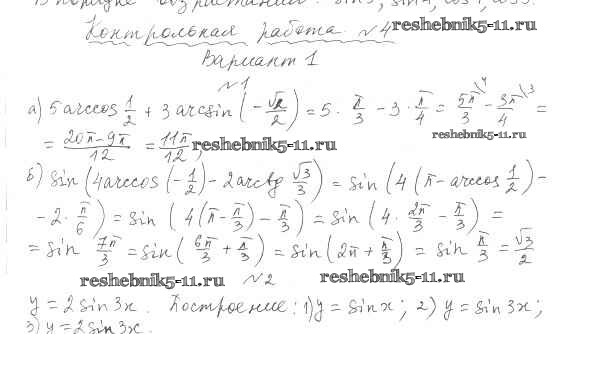 В порядке возрастания: sin3, sin4, cos4, cos3.
Контрольная работа №4 reshebnik5-11.ru
Вариант 1
№1
а) 5 arccos 1/2 + 3 arcsin (-√2/2) = 5 · π/3 - 3 · π/4 = 5π/3 \4 - 3π/4 \3 =
reshebnik5-11.ru
= (20π-9π)/12 = 11π/12; reshebnik5-11.ru
б) sin(4arccos(-1/2) - 2arctg √3/3) = sin(4(π-arccos 1/2) -
- 2·π/6) = sin(4(π-π/3)-π/3) = sin(4·2π/3 - π/3) =
= sin 7π/3 = sin(6π/3 + π/3) = sin(2π+π/3) = sin π/3 = √3/2
reshebnik5-11.ru №2 reshebnik5-11.ru
y=2sin3x. Построение: 1) y=sinx; 2) y=sin3x;
3) y=2sin3x.